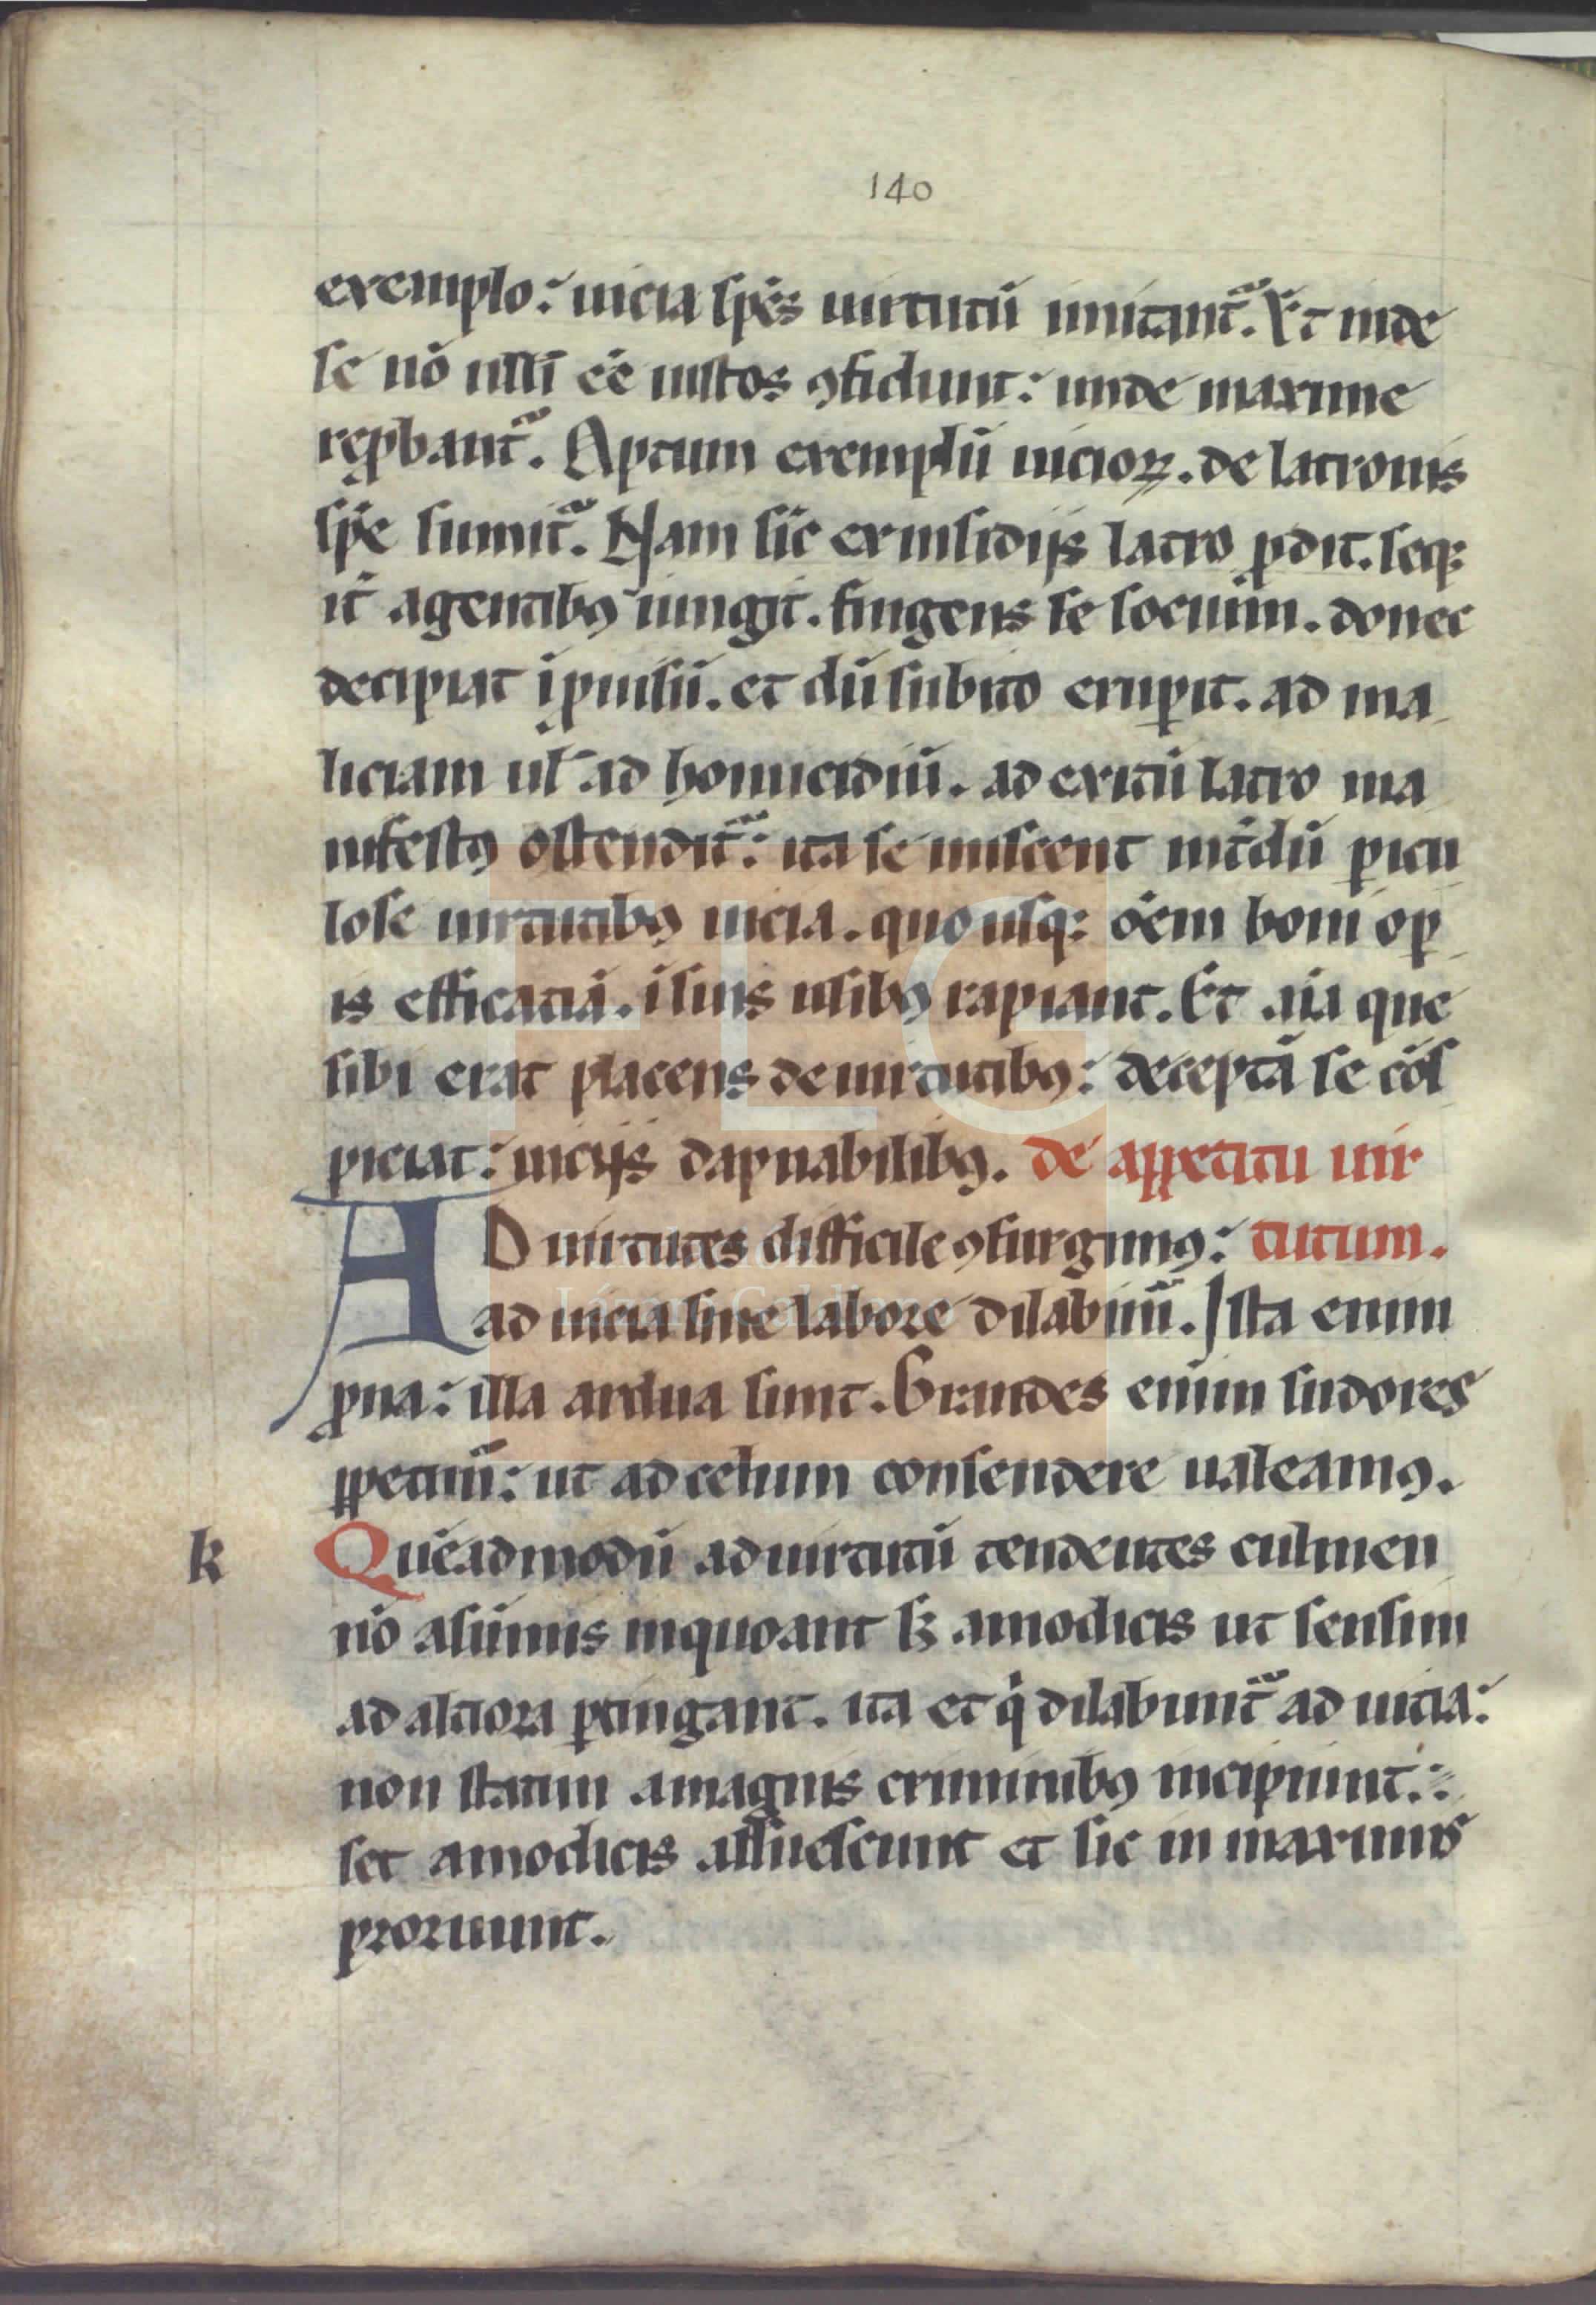 140
exemplo: uicia sp̄es uirtutū imitant᷑. Et inde
se nō ulli ēē iustos ꝯfidunt: unde maxime
reꝓbant᷑. Aptum exemplū uicioꝝ. de latronis
sp̄e sumit᷑. Nam sic̄ ex insidijs latro ꝓdit. seq;
it̄ agentibꝰ iungit. fingens se socium. donec
decipiat īꝓuisū. et dū subito eruꝑit. ad ma
liciam ul̄ ad homicidiū. ad exitū latro ma
nifestꝰ ostendit᷑: ita se miscent int̄dū ꝑicu
lose uirtutibꝰ uicia. quo usq; ōēm boni oꝑ
is efficaciā. ī suis usibꝰ rapiant. Et aīa que
sibi erat placens de uirtutibꝰ: deceptā se cōs
piciat: uicijs dapnabilibꝰ. de appetitu uir
AD uirtutes difficile ꝯsurgimꝰ: tutum.
ad uicia sine labore dilabim᷑. Ista enim
ꝓna: illa ardua sunt. Grandes enim sudores
ꝑpetim᷑: ut ad celum consendere ualeamꝰ.
k Quēadmodū ad uirtutū tendentes culmen
nō a sūmis inquoant sꝫ a modicis ut sensim
ad altiora ꝑtingant. ita et qͥ dilabunt᷑ ad uicia:
non statim a magnis criminibꝰ incipiunt:
set a modicis assuescunt et sic in maximis
proruunt.
TLG
Lázaro Galdiano